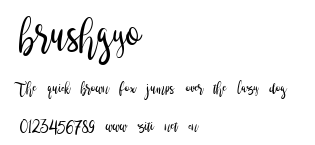 brushgyo
The quick brown fox jumps over the lazy dog
0123456789 www siti net en